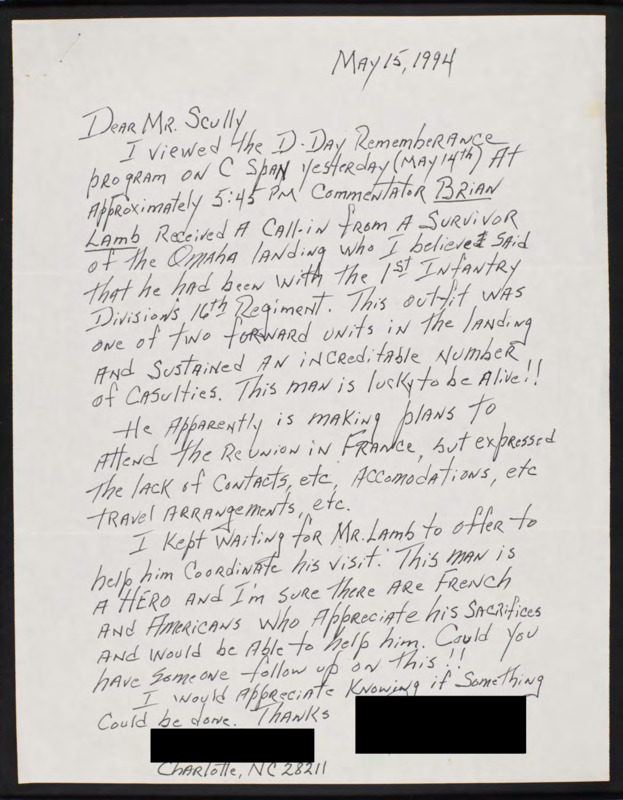 May 15, 1994
Dear Mr. Scully
I viewed the D-Day Rememberance
program on C Span yesterday (May 14th) At
Approximately 5:45 PM Commentator Brian
Lamb Received A Call-in from A Survivor
of the Omaha landing who I believe said
that he had been with the 1st Infantry
Division's 16th Regiment. This outfit was
one of two forward units in the landing
And sustained An increditable number
of Casulties. This man is lucky to be Alive!!
He Apparently is making plans to
Attend the Reunion in France, but expressed
the lack of Contacts, etc, Accomodations, etc
travel Arrangements, etc.
I kept waiting for Mr. Lamb to offer to
help him Coordinate his visit. This man is
A Hero And I'm sure there Are French
And Americans who Appreciate his Sacrifices
And would be Able to help him. Could you
have someone follow up on this!!
I would Appreciate knowing if something
Could be done. Thanks
Charlotte, NC 28211